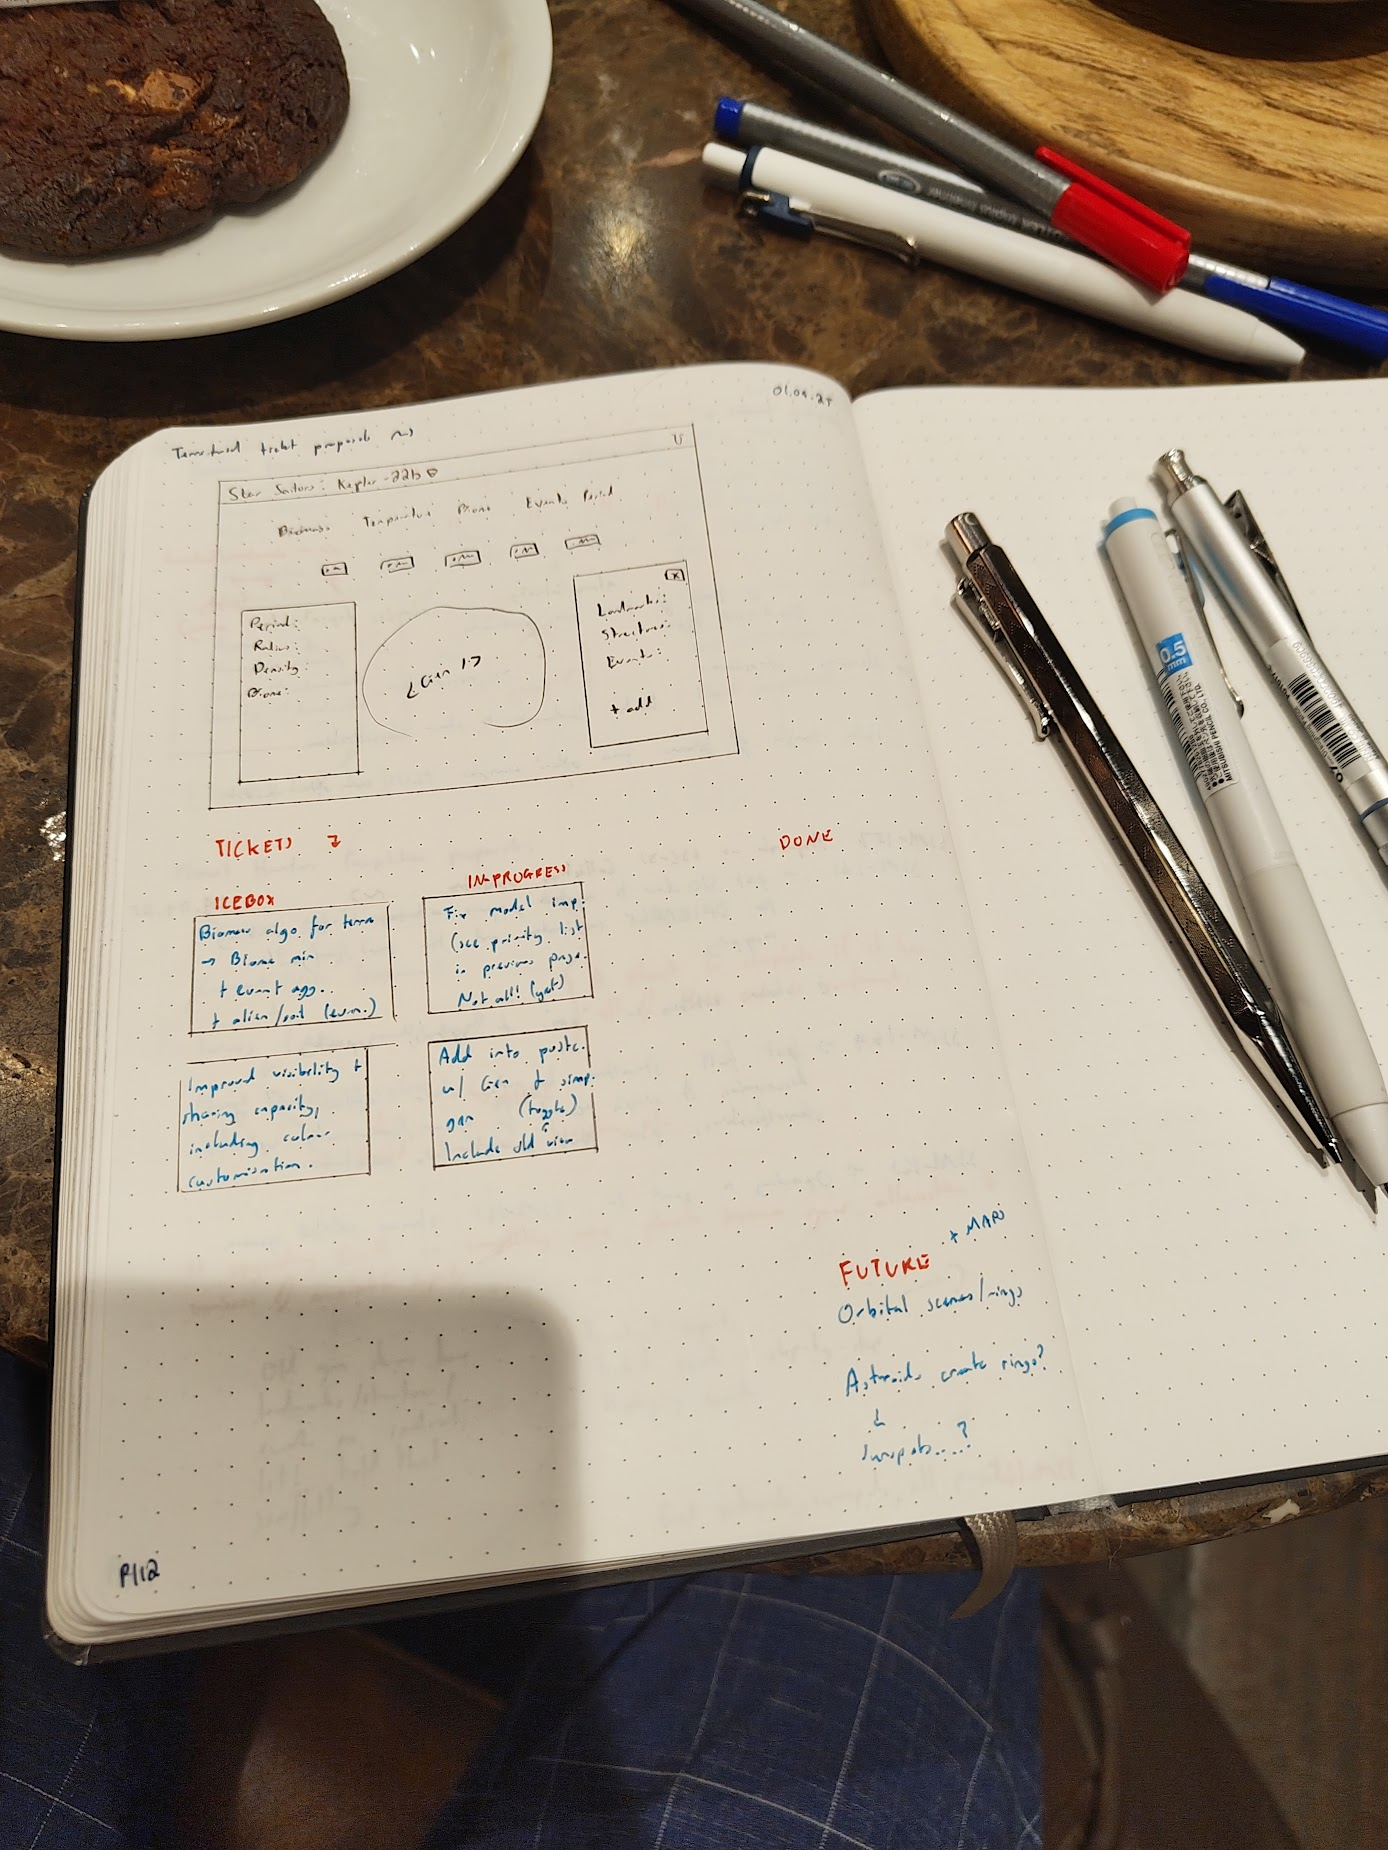 01.04.25
ticket proposals
Star Sailors: Kepler-22b
Biomass Temperature Biome Events Period
Period:
Radius:
Density
Biome:
Landmarks:
Structures:
Events:
+ add
TICKETS
DONE
ICEBOX
IN-PROGRESS
Biomass algo for terra
→ Biome min
+ event agg.
+ align/
Improved visibility +
sharing capacity,
including colour
customisation.
Fix model imp.
(see priority list
in previous page.
Not all! (yet)
Add into postc.
w/ Gen & simp.
gen (toggle)
Include old view
+ MAPS
FUTURE
Orbital scenes/rings
Asteroids create rings?
P112
0.5
mm
MITSUBISHI PENCIL CO., LTD.